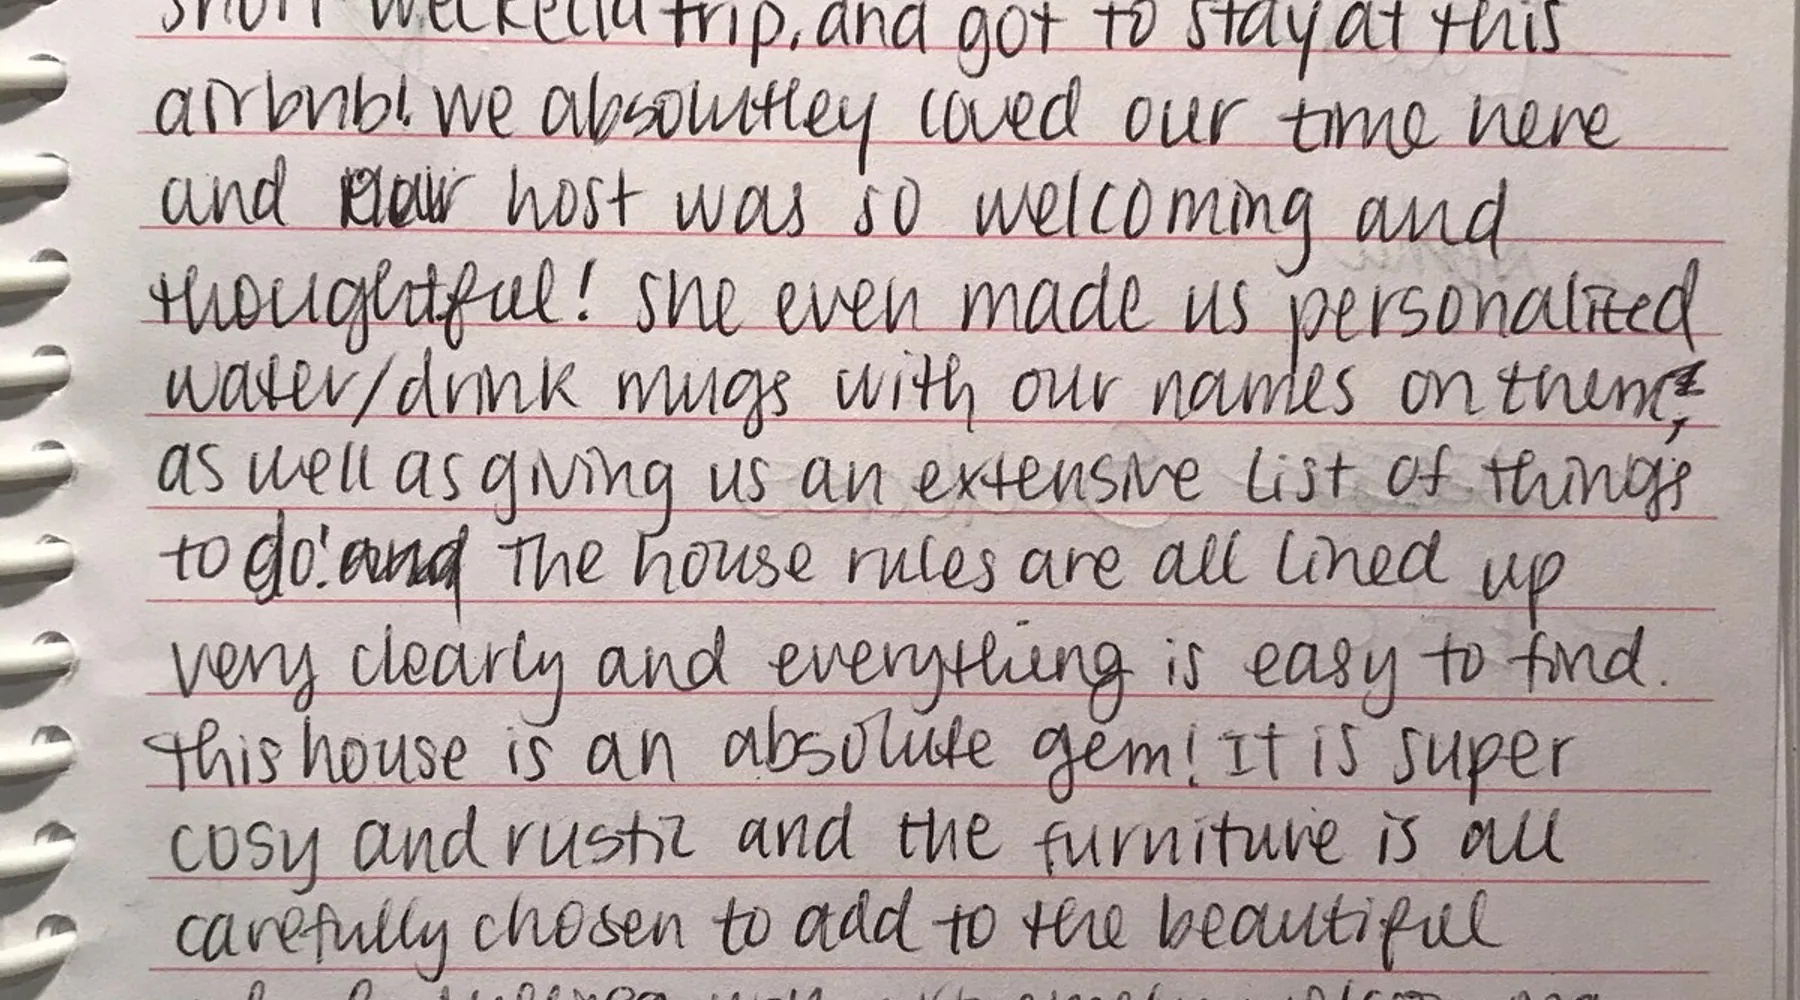 short weekend trip, and got to stay at this
airbnb! we absolutley loved our time here
and our host was so welcoming and
thoughtful! she even made us personalized
water/drink mugs with our names on them,
as well as giving us an extensive list of things
to do! and The house rules are all lined up
very clearly and everything is easy to find.
this house is an absolute gem! It is super
cosy and rustic and the furniture is all
carefully chosen to add to the beautiful